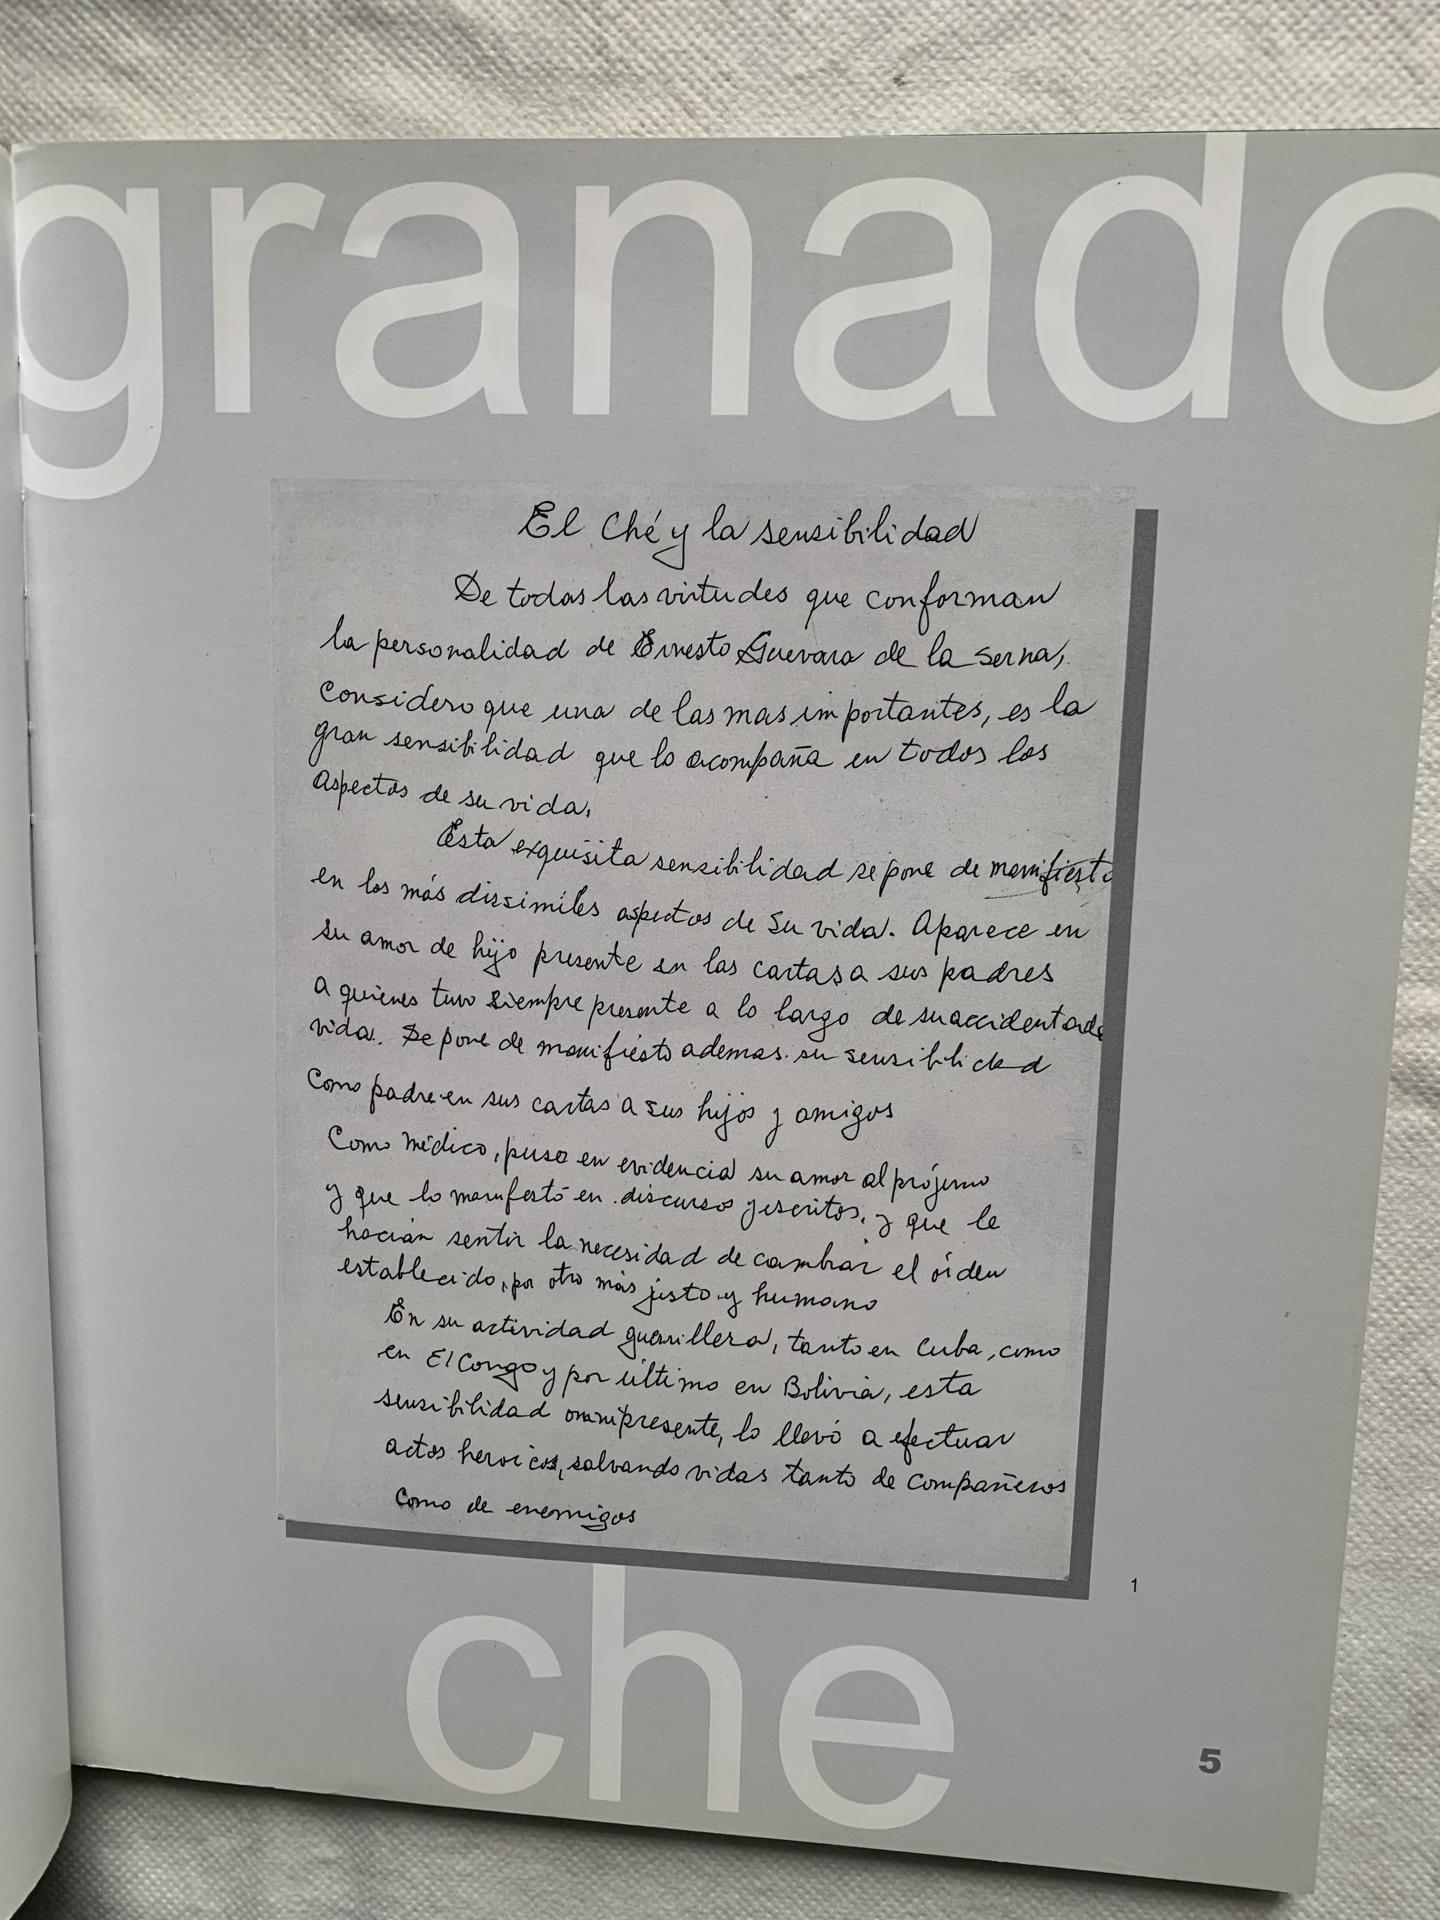 granado
El Ché y la sensibilidad
De todas las virtudes que conforman
la personalidad de Ernesto Guevara de la Serna,
considero que una de las mas importantes, es la
gran sensibilidad que lo acompaña en todos los
aspectos de su vida.
Esta exquisita sensibilidad se pone de manifiesto
en los más dissimiles aspectos de su vida. Aparece en
su amor de hijo presente en las cartas a sus padres
a quienes tuvo siempre presente a lo largo de su accidentada
vida. Se pone de manifiesto ademas su sensibilidad
como padre en sus cartas a sus hijos y amigos
Como médico, puso en evidencia su amor al prójimo
y que lo manifestó en discursos y escritos, y que le
hacian sentir la necesidad de cambiar el órden
establecido, por otro más justo y humano
En su actividad guerrillera, tanto en Cuba, como
en El Congo y por último en Bolivia, esta
sensibilidad omnipresente, lo llevó a efectuar
actos heroicos, salvando vidas tanto de compañeros
como de enemigos
1
che
5